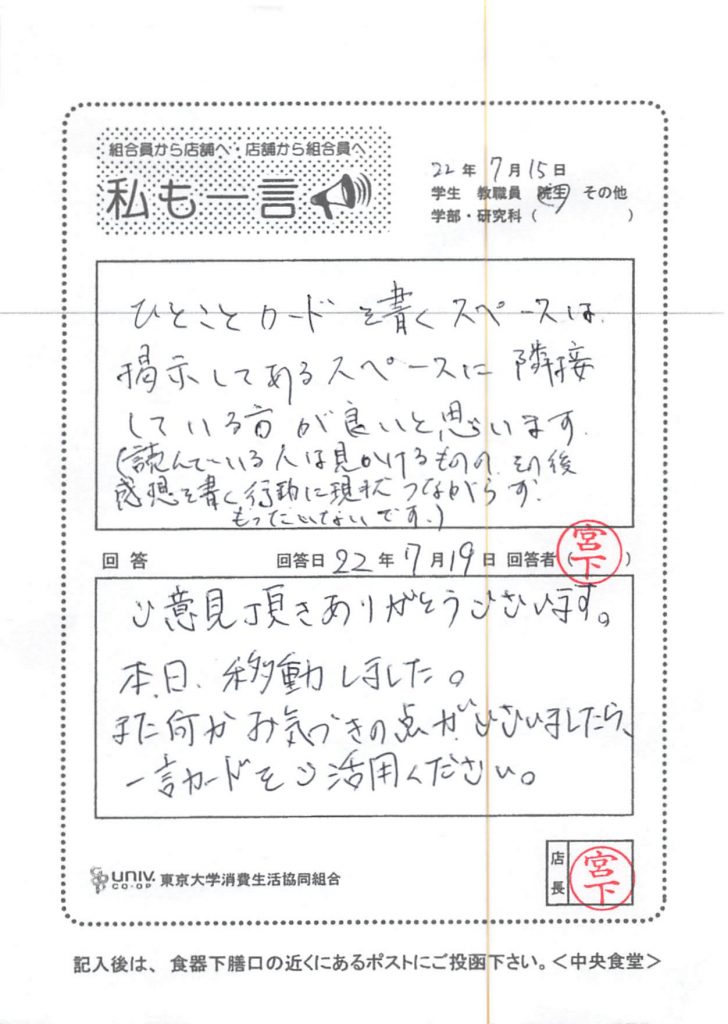 組合員から店舗へ・店舗から組合員へ
私も一言
22年7月15日
学生 教職員 院生 その他
学部・研究科( )
ひとことカードを書くスペースは、
掲示してあるスペースに隣接
している方が良いと思います。
(読んでいる人は見かけるものの、その後
感想を書く行動に現状つながらず、
もったいないです。)
回答 回答日22年7月19日 回答者(宮下)
ご意見頂きありがとうございます。
本日、移動しました。
また何かお気づきの点がございましたら、
一言カードをご活用ください。
UNIV. CO-OP 東京大学消費生活協同組合
店長 宮下
記入後は、食器下膳口の近くにあるポストにご投函下さい。<中央食堂>